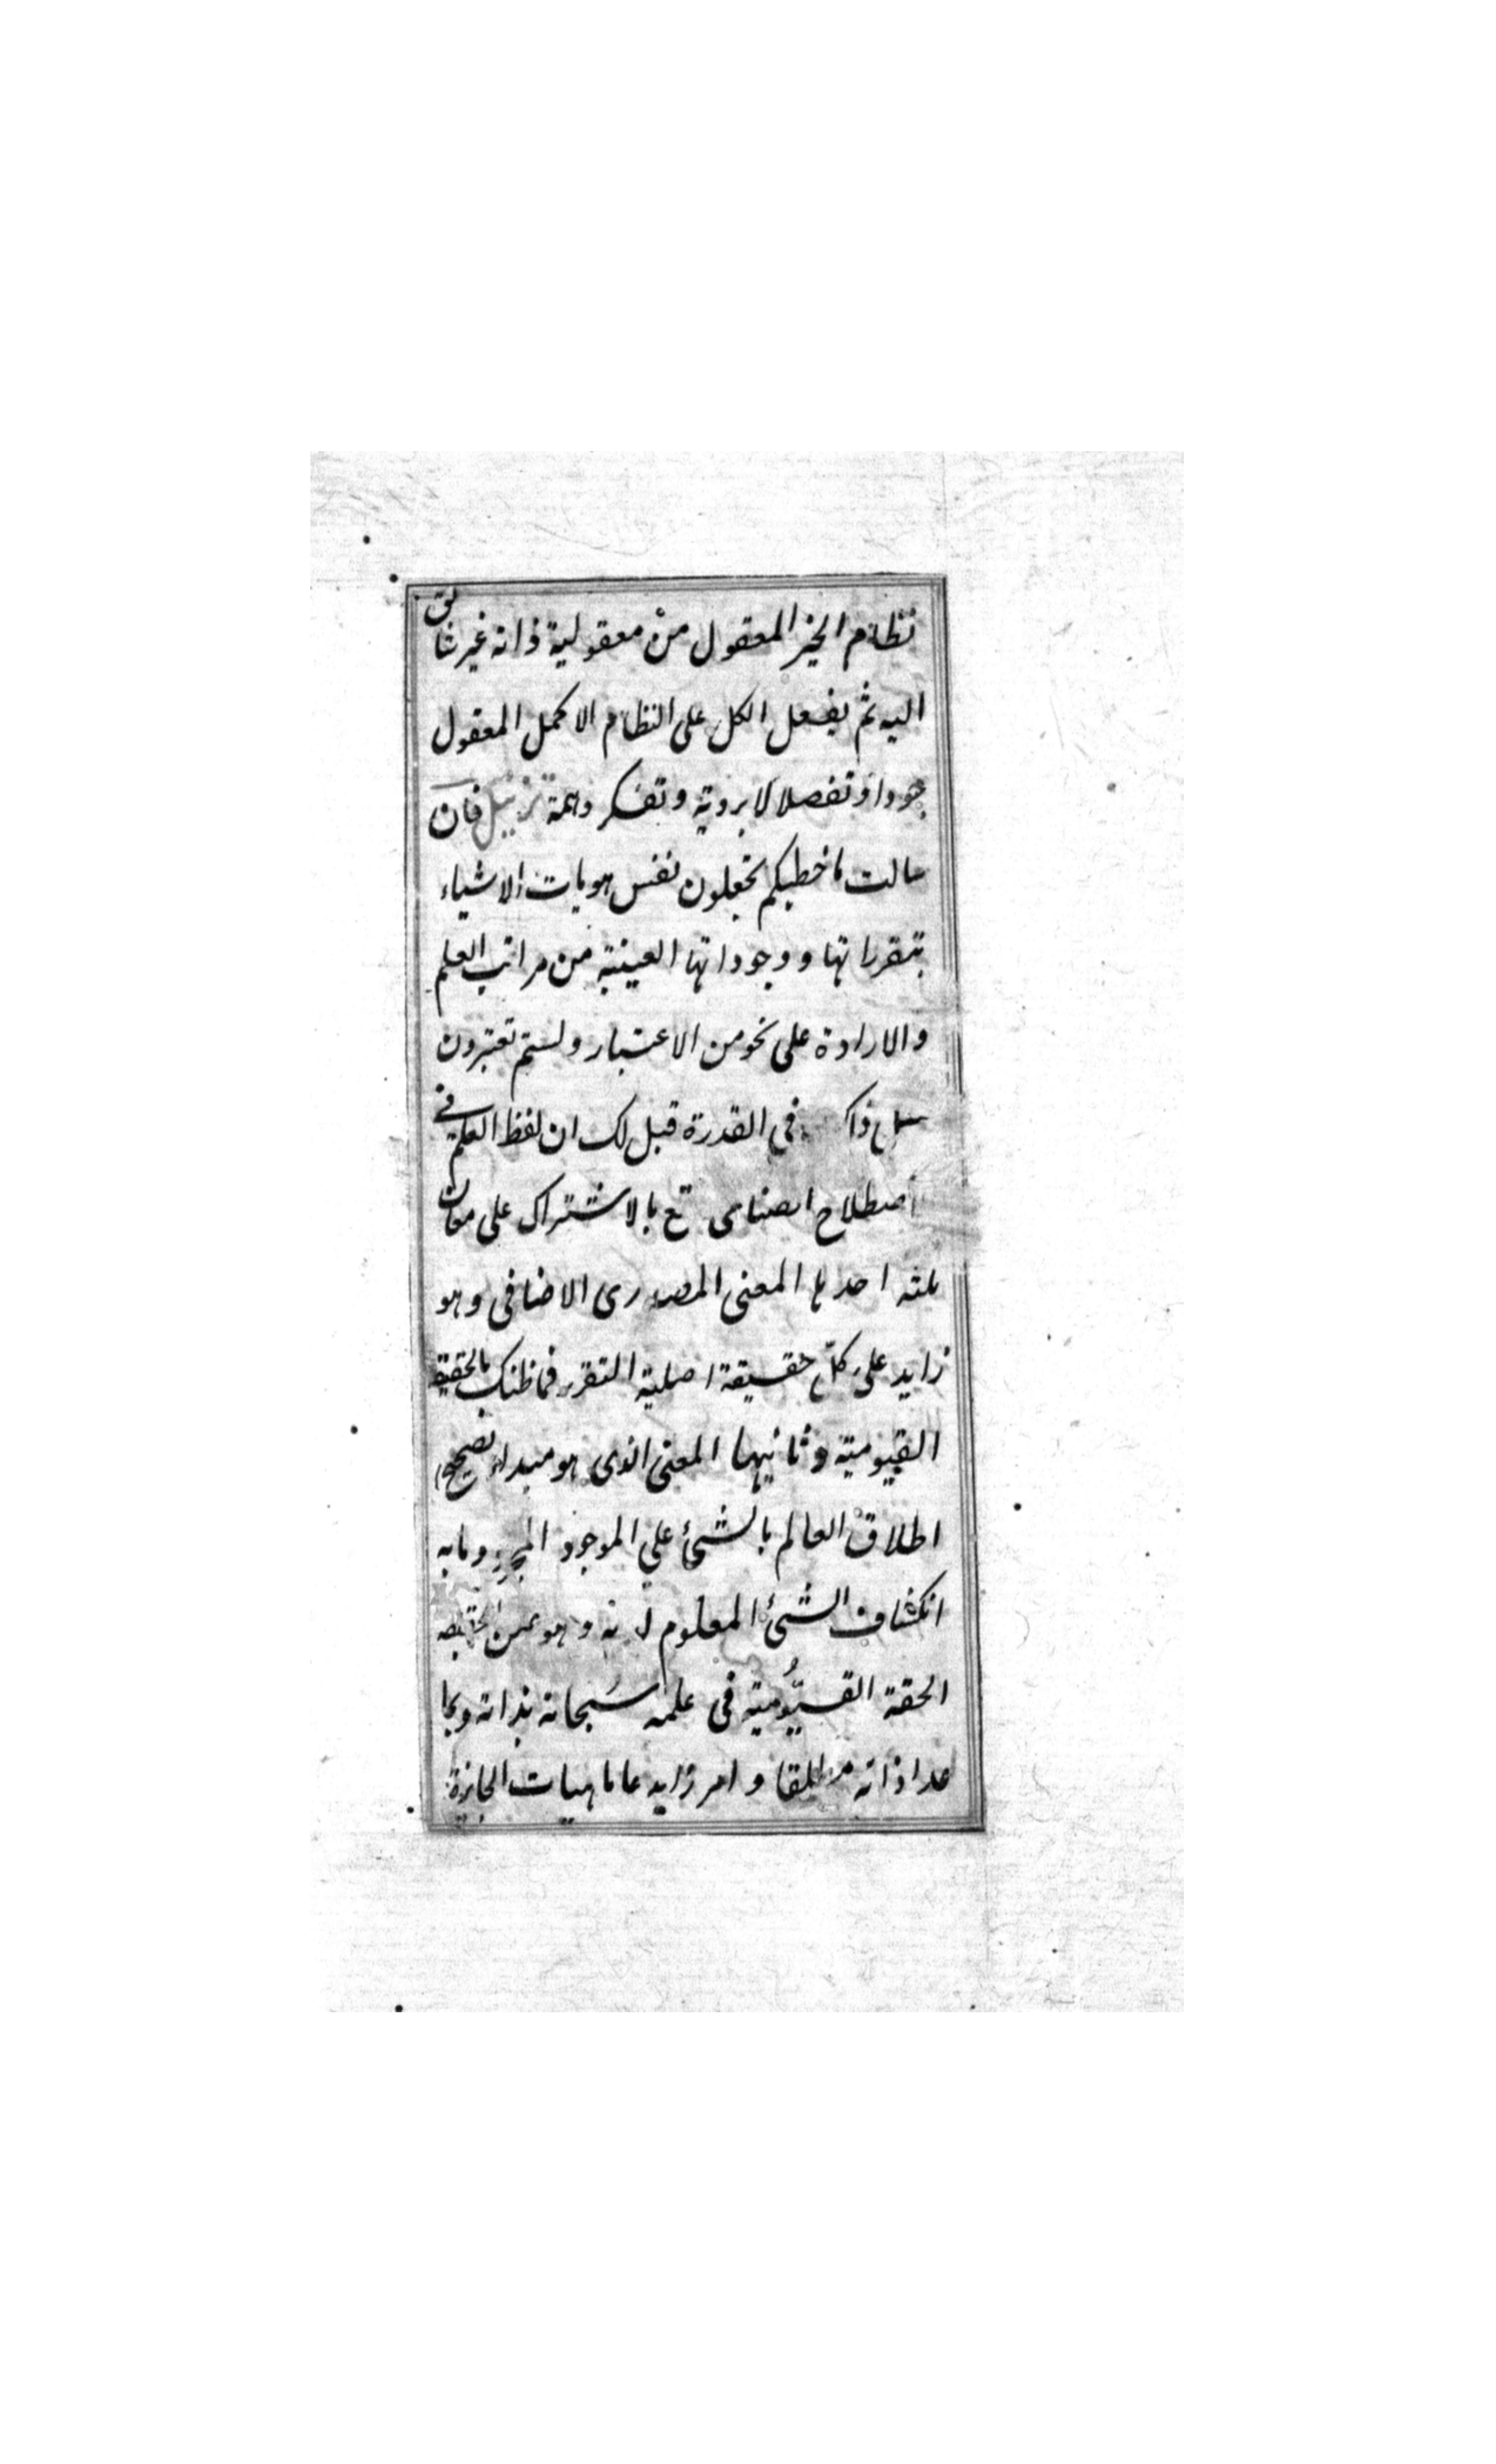 نظام الخير المعقول من معقولية ذاته غير شائق
اليه ثم يفعل الكل على النظام الاكمل المعقول
جودا وتفصلا لا بروية وتفكر وهمة تزييل فان
سالت ما خطبكم تجعلون نفس هويات الاشياء
بتقرراتها ووجوداتها العينية من مراتب العلم
والارادة على نحو من الاعتبار ولستم تعتبرون
ذاك في القدرة قيل لك ان لفظ العلم في
اصطلاح الصناعى يقع بالاشتراك على معان
ثلثه احدها المعنى المصدرى الاضافى وهو
زايد على كل حقيقة اصلية التقرر فما ظنك بالحقيقة
القيومية وثانيها المعنى الذى هو مبداء تصحيح
اطلاق العالم بالشئ على الموجود المجرد وما به
انكشاف الشئ المعلوم وهو عين الحقيقه
الحقة القيُّومية فى علمه سبحانه بذاته وبما
عدا ذاته مطلقا وامر زايد ماهيات الجايزة